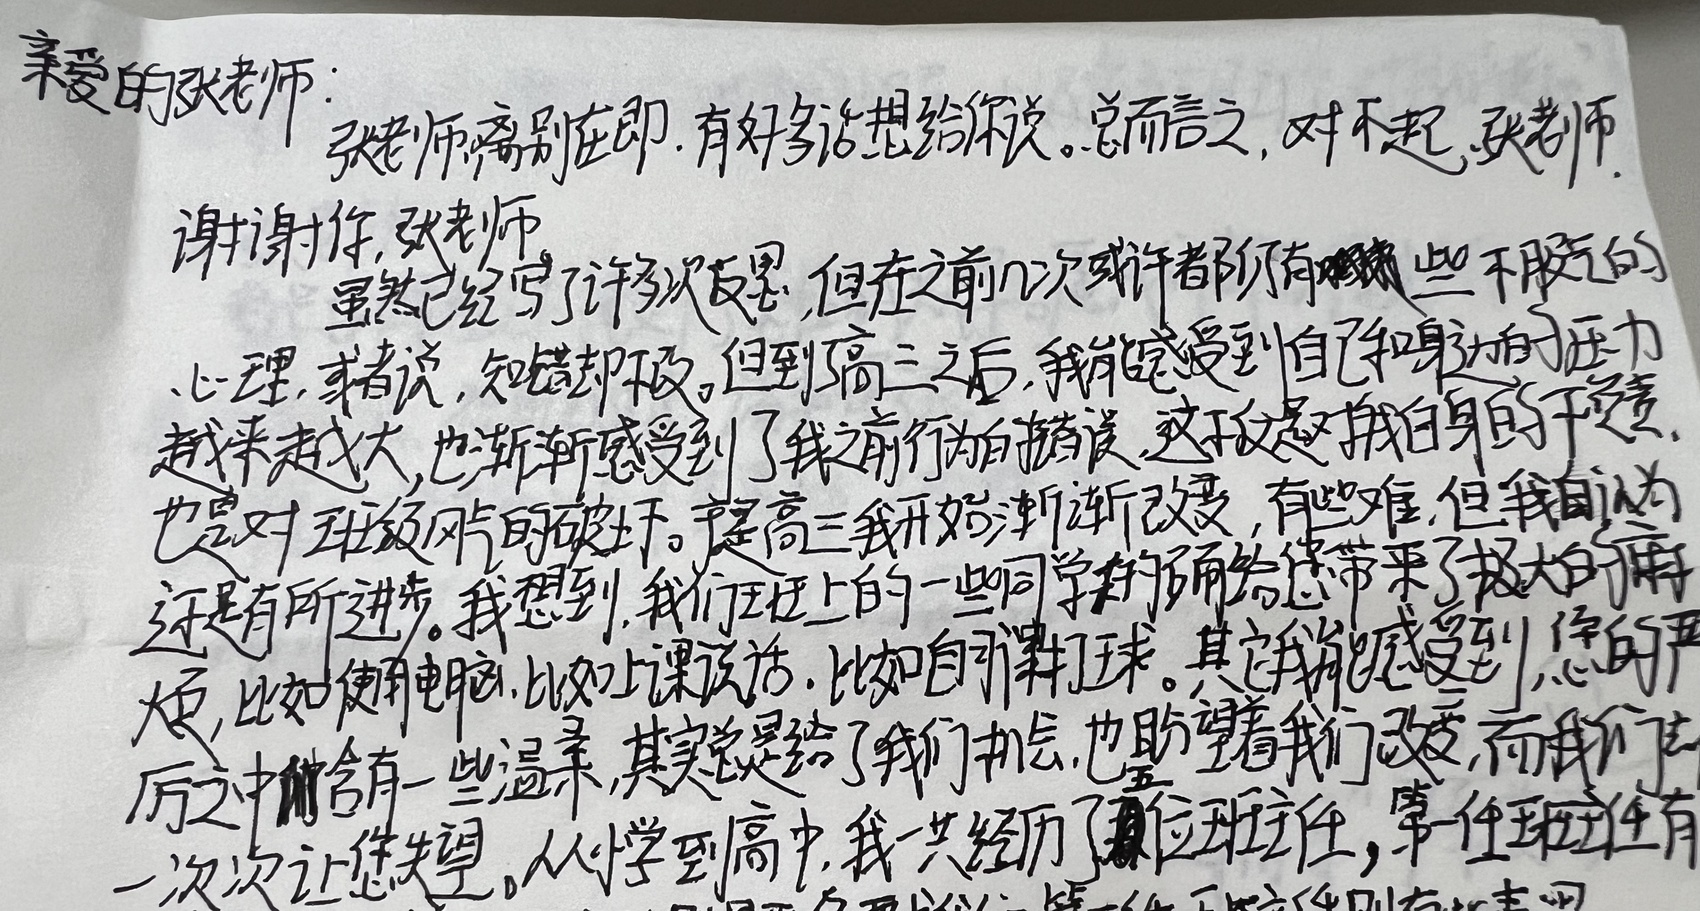 亲爱的张老师：
张老师，离别在即，有好多话想给你说。总而言之，对不起，张老师，
谢谢你，张老师。
虽然已经写了许多次反思，但在之前几次或许都仍有些不服气的
心理，或者说，知错却不改。但到了高三之后，我能感受到自己和身边的压力
越来越大，也渐渐感受到了我之前行为的错误，这不仅是对我自身的不负责，
也是对班级风气的破坏。于是高三我开始渐渐改变，有些难，但我自认为
还是有所进步。我想到，我们班上的一些同学的确给您带来了极大的麻
烦，比如使用电脑，比如上课说话，比如自习课打球。其它我能感受到，您的严
厉之中含有一些温柔，其实总是给了我们机会，也盼望着我们改变，而我们却
一次次让您失望。从小学到高中，我一共经历了五位班主任，第一任班主任有